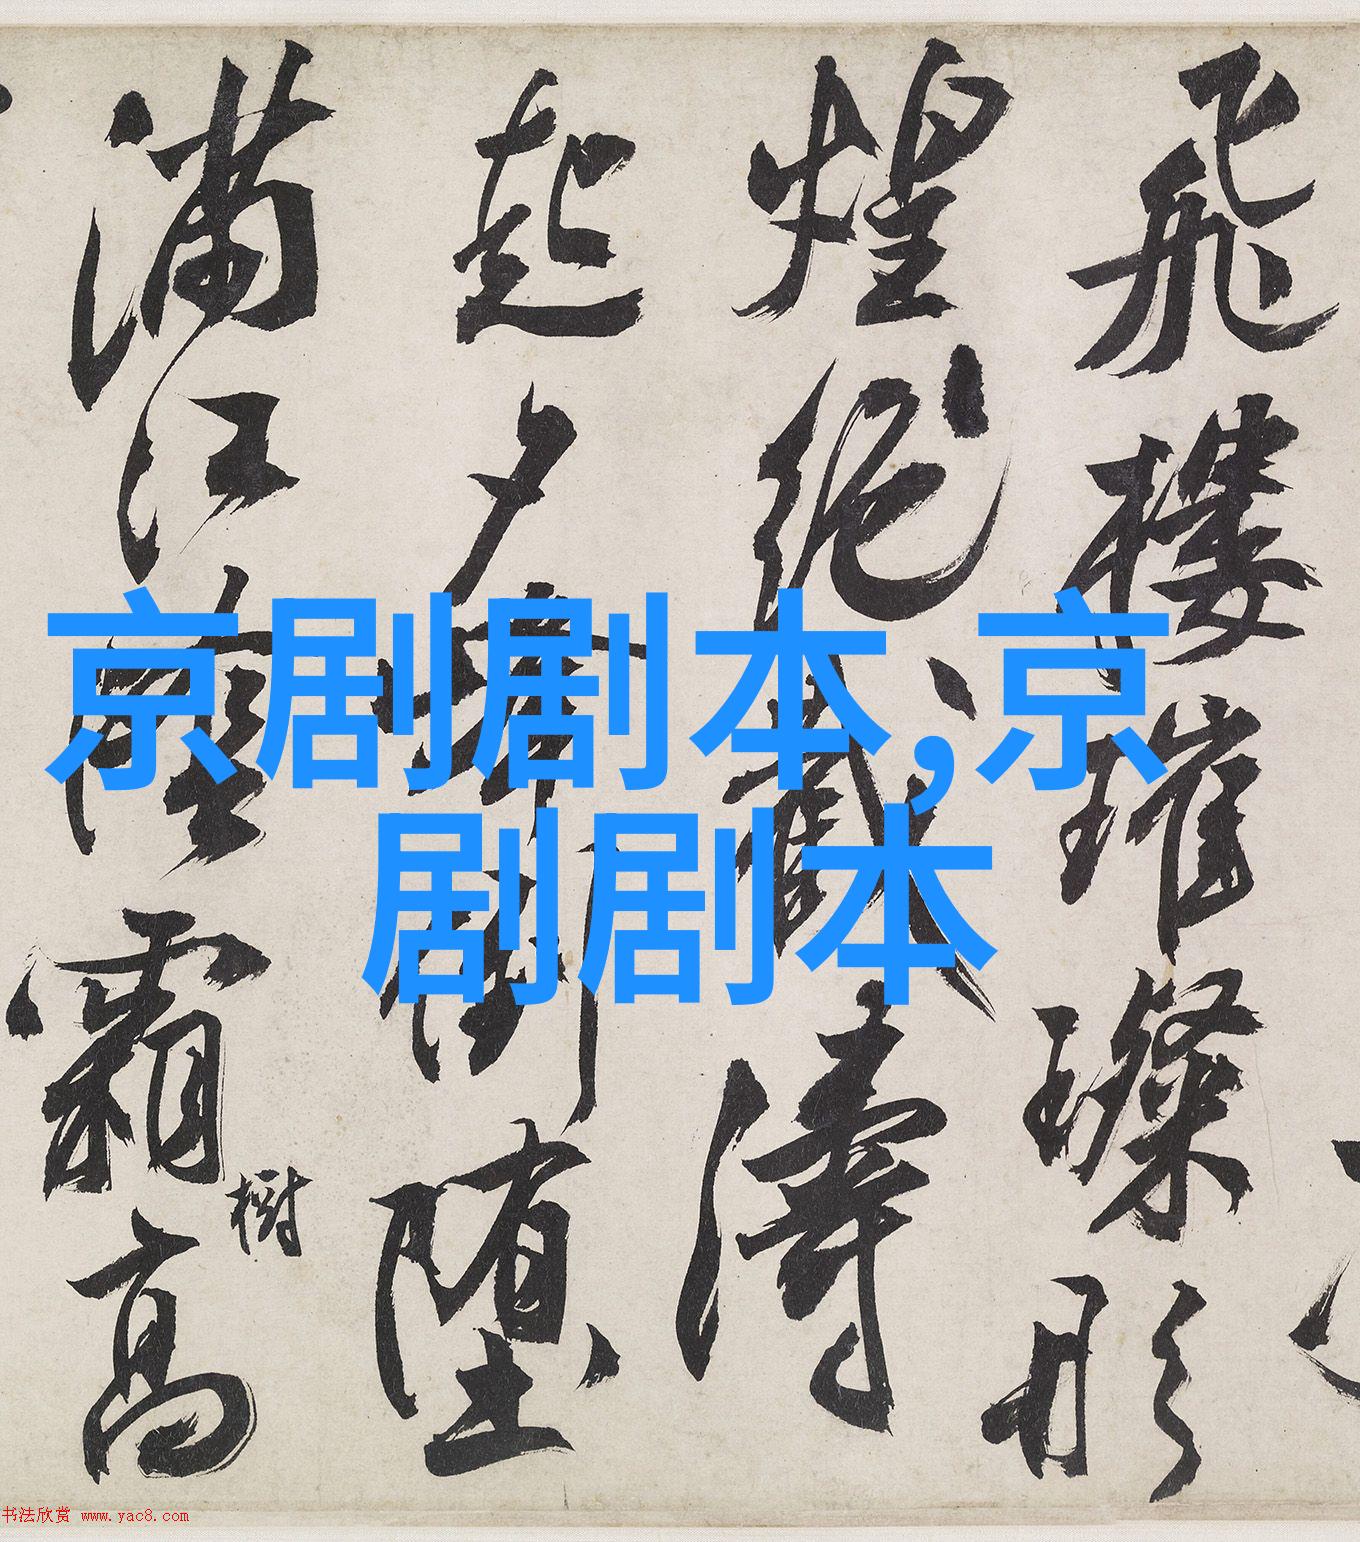 飛樓璀璨形
煌絶濤
起夕街堕
滿江霜高
樹
京剧剧本,京
剧剧本
书法欣赏 www.yac8.com